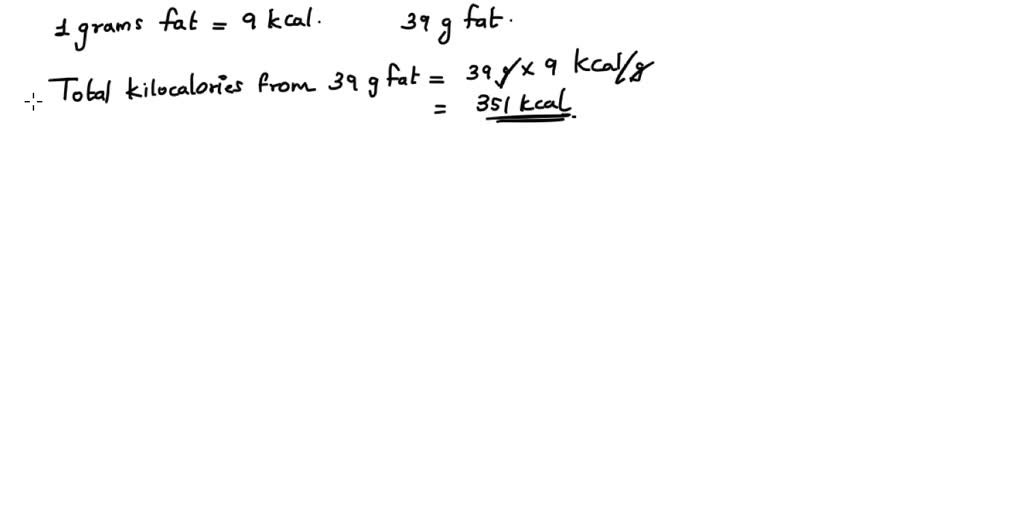 1 grams fat = 9 kcal. 39 g fat.
Total kilocalories from 39 g fat = 39 g x 9 kcal/g
= 351 kcal.